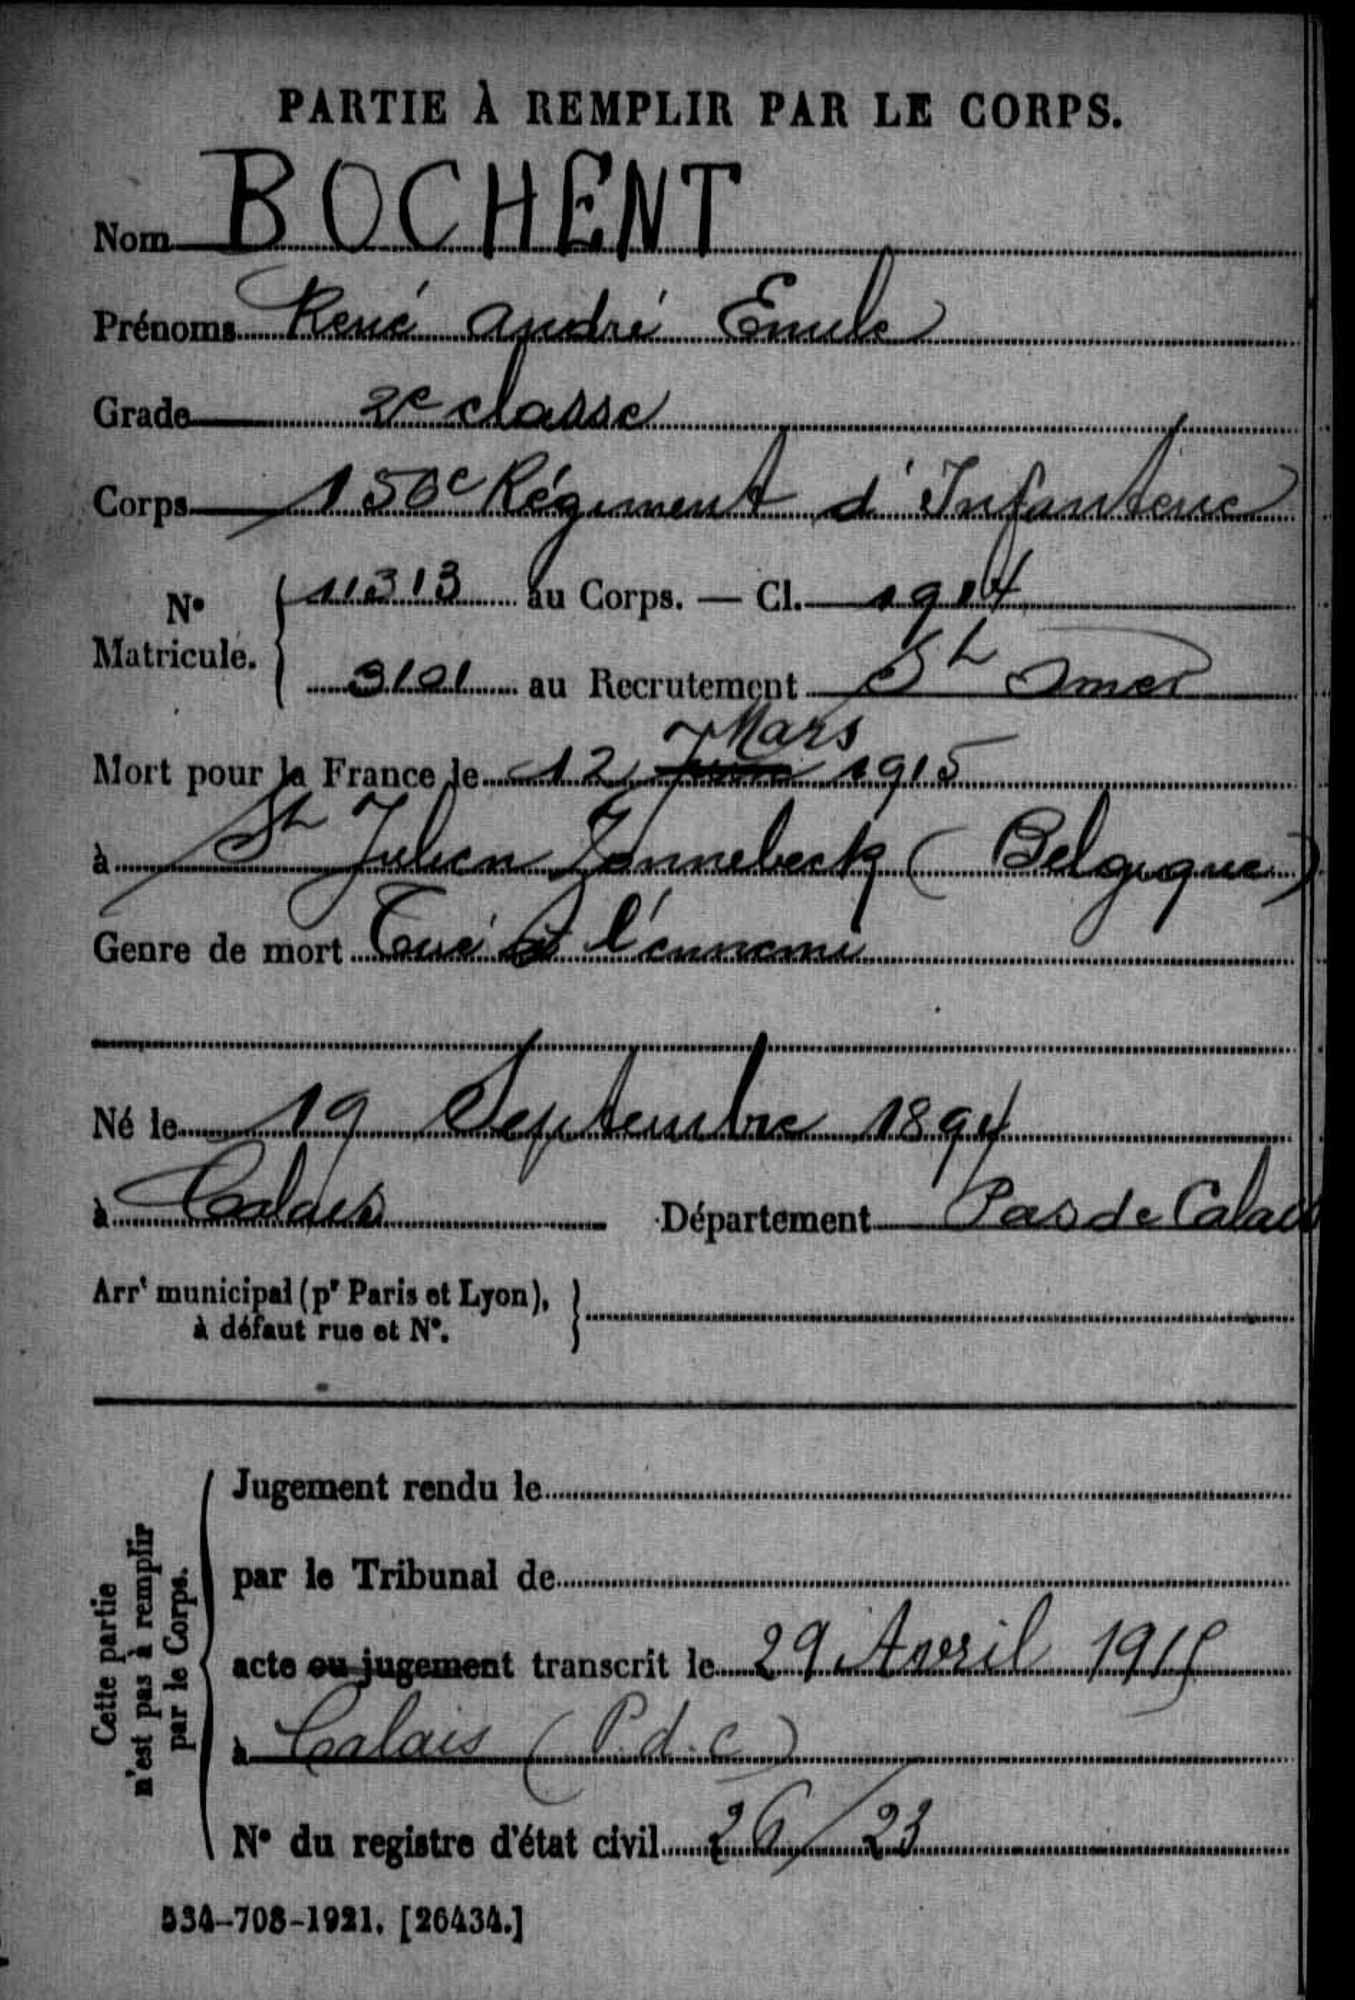 PARTIE À REMPLIR PAR LE CORPS.
Nom BOCHENT
Prénoms René André Emile
Grade 2e classe
Corps 150e Régiment d'Infanterie
N° Matricule. 11313 au Corps. — Cl. 1914
3101 au Recrutement St Omer
Mars
Mort pour la France le 12 Juin 1915
à St Julien Zonnebeck (Belgique)
Genre de mort Tué à l'ennemi
Né le 19 Septembre 1894
à Calais Département Pas de Calais
Arrt municipal (pr Paris et Lyon),
à défaut rue et N°.
Cette partie
n'est pas à remplir
par le Corps.
Jugement rendu le
par le Tribunal de
acte ou jugement transcrit le 29 Avril 1915
à Calais (P.d.c)
N° du registre d'état civil 26/23
534-708-1921. [26434.]